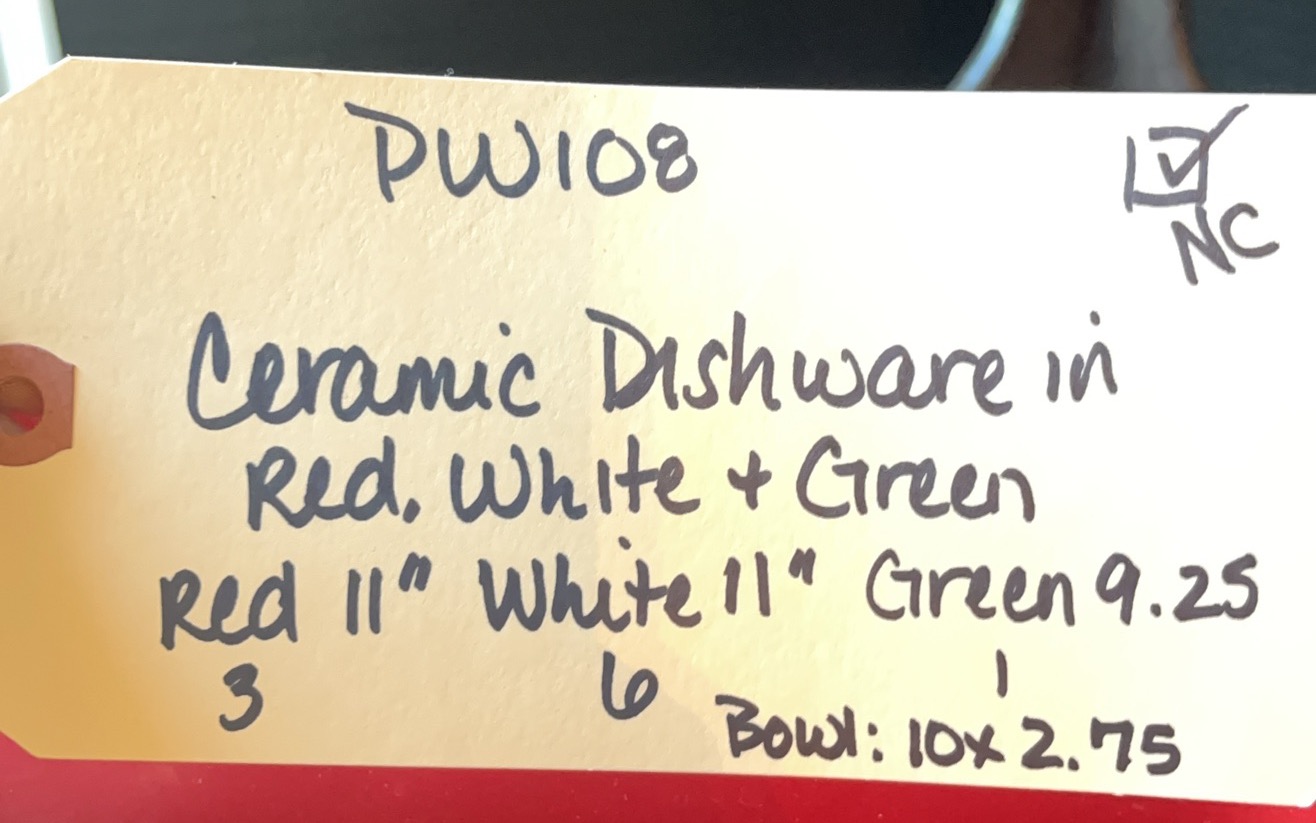 DW108
☑
NC
Ceramic Dishware in
Red. White + Green
Red 11" White 11" Green 9.25
3 6 1
Bowl: 10x2.75